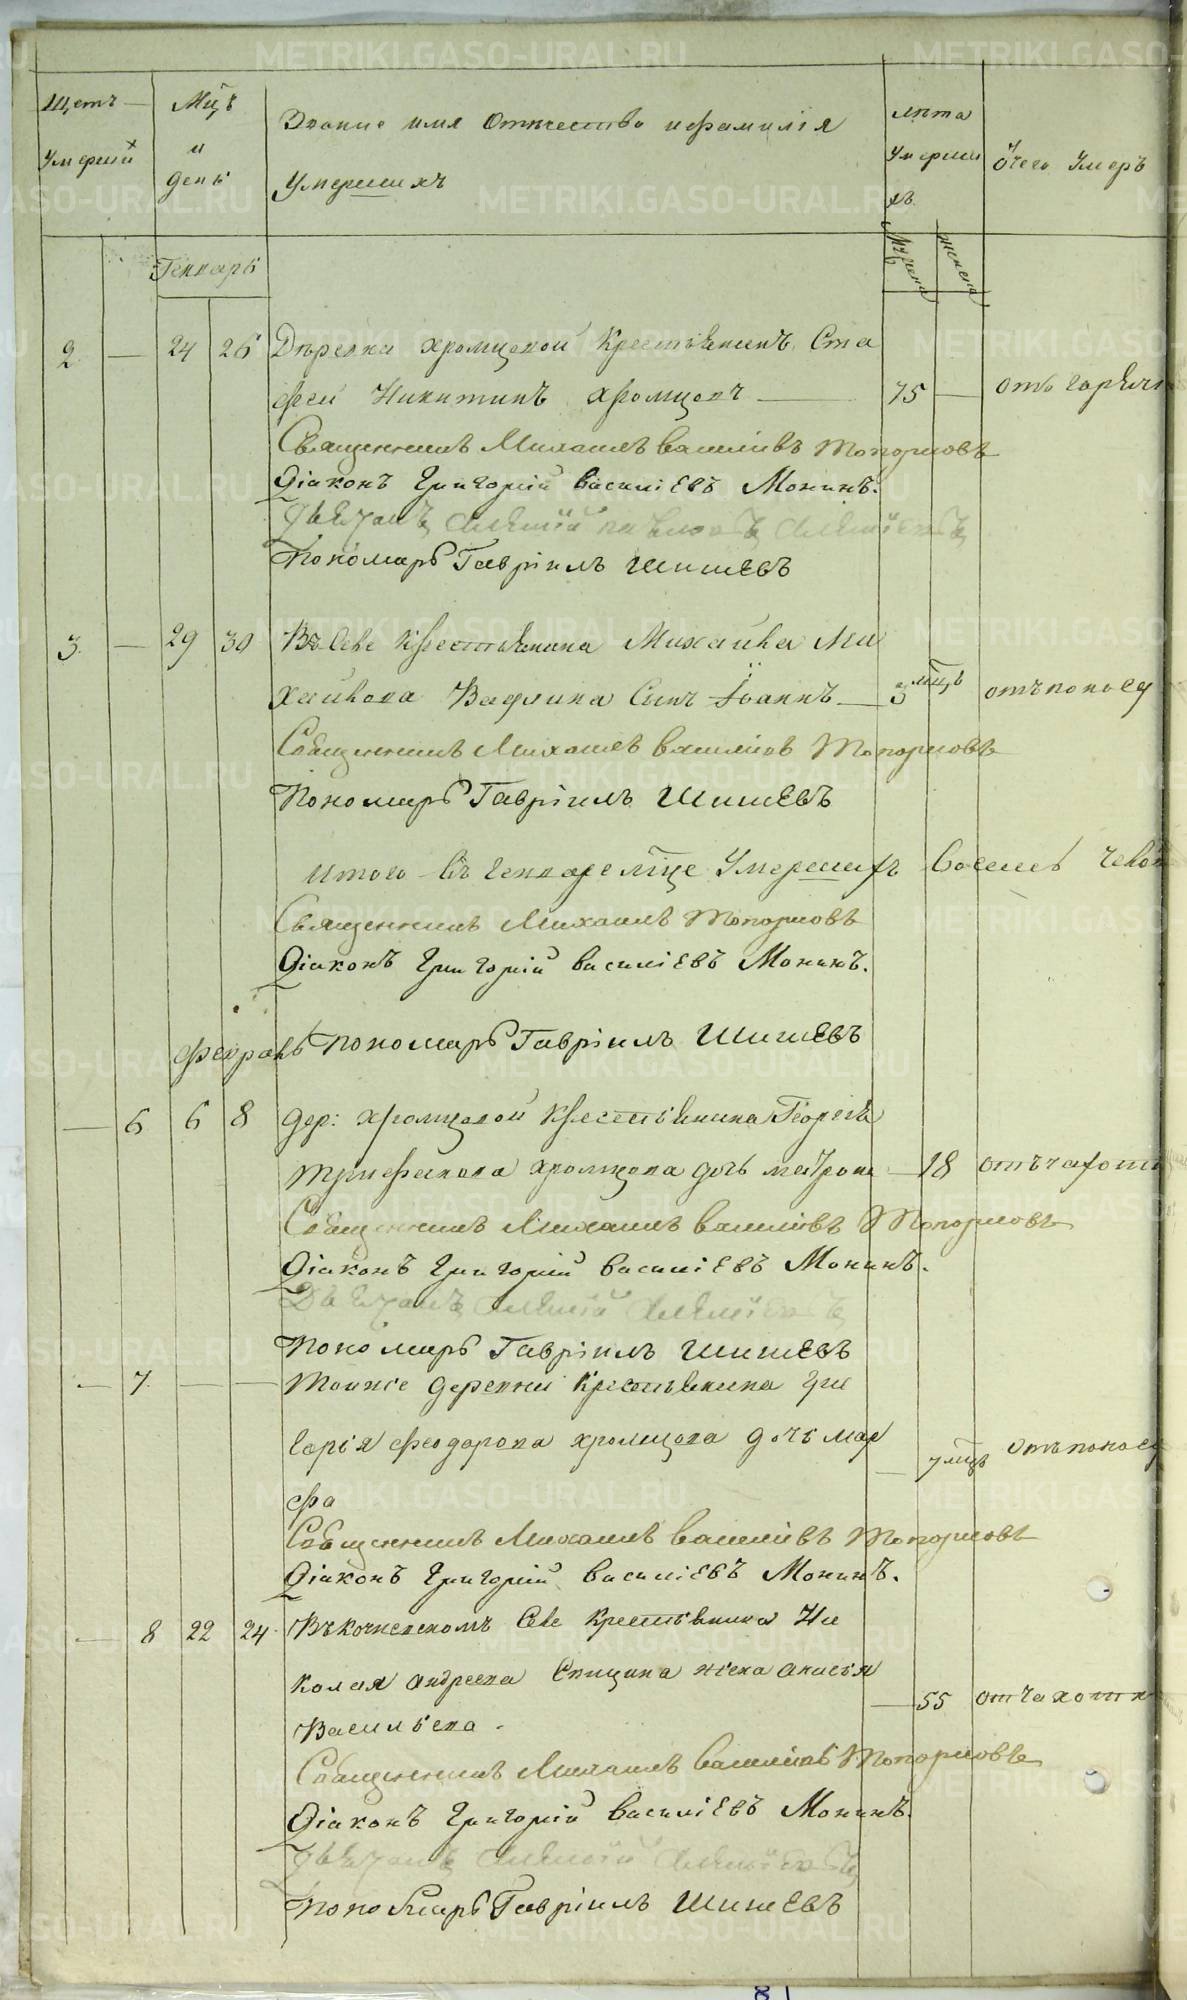 Щетъ умерших
Мцъ и день
Звание имя Отчество и фамилія умершихъ
лѣта умерших
отчего умеръ
мужеска
женска
Генварь
2 — 24 26 Деревни Хромцовой Крестьянинъ Ста
фей Никитинъ Хромцовъ — 75 — отъ горячк
Священникъ Михаилъ Васильевъ Топорковъ
Діаконъ Григорій Василіевъ Монинъ.
Пономарь Гавріилъ Шишевъ
3 — 29 30 Въ Селе Крестьянина Михайла Ми
хайлова Ваулина Сынъ Іоаннъ — 3 мцъ отъ поносу
Священникъ Михаилъ Васильевъ Топорковъ
Пономарь Гавріилъ Шишевъ
Итого въ генваре мце Умершихъ восемь чело
Священникъ Михаилъ Топорковъ
Діаконъ Григорій Василіевъ Монинъ.
Февраль Пономарь Гавріилъ Шишевъ
— 6 6 8 Дер: Хромцовой Крестьянина Георгія
Трифанова Хромцова дочь Матрона — 18 отъ чахотк
Священникъ Михаилъ Васильевъ Топорковъ
Діаконъ Григорій Василіевъ Монинъ.
Пономарь Гавріилъ Шишевъ
— 7 — — Тойже деревни Крестьянина Гри
горья Феодорова Хромцова дочь Мар
— 7 мцъ отъ поносу
фа
Священникъ Михаилъ Васильевъ Топорковъ
Діаконъ Григорій Василіевъ Монинъ.
— 8 22 24 Въ Кочневскомъ Селе Крестьянина Ни
колая Андреева Спицина жена Анисья
— 55 отъ чахотк
Васильева.
Священникъ Михаилъ Васильевъ Топорковъ
Діаконъ Григорій Василіевъ Монинъ.
Пономарь Гавріилъ Шишевъ
METRIKI.GASO-URAL.RU